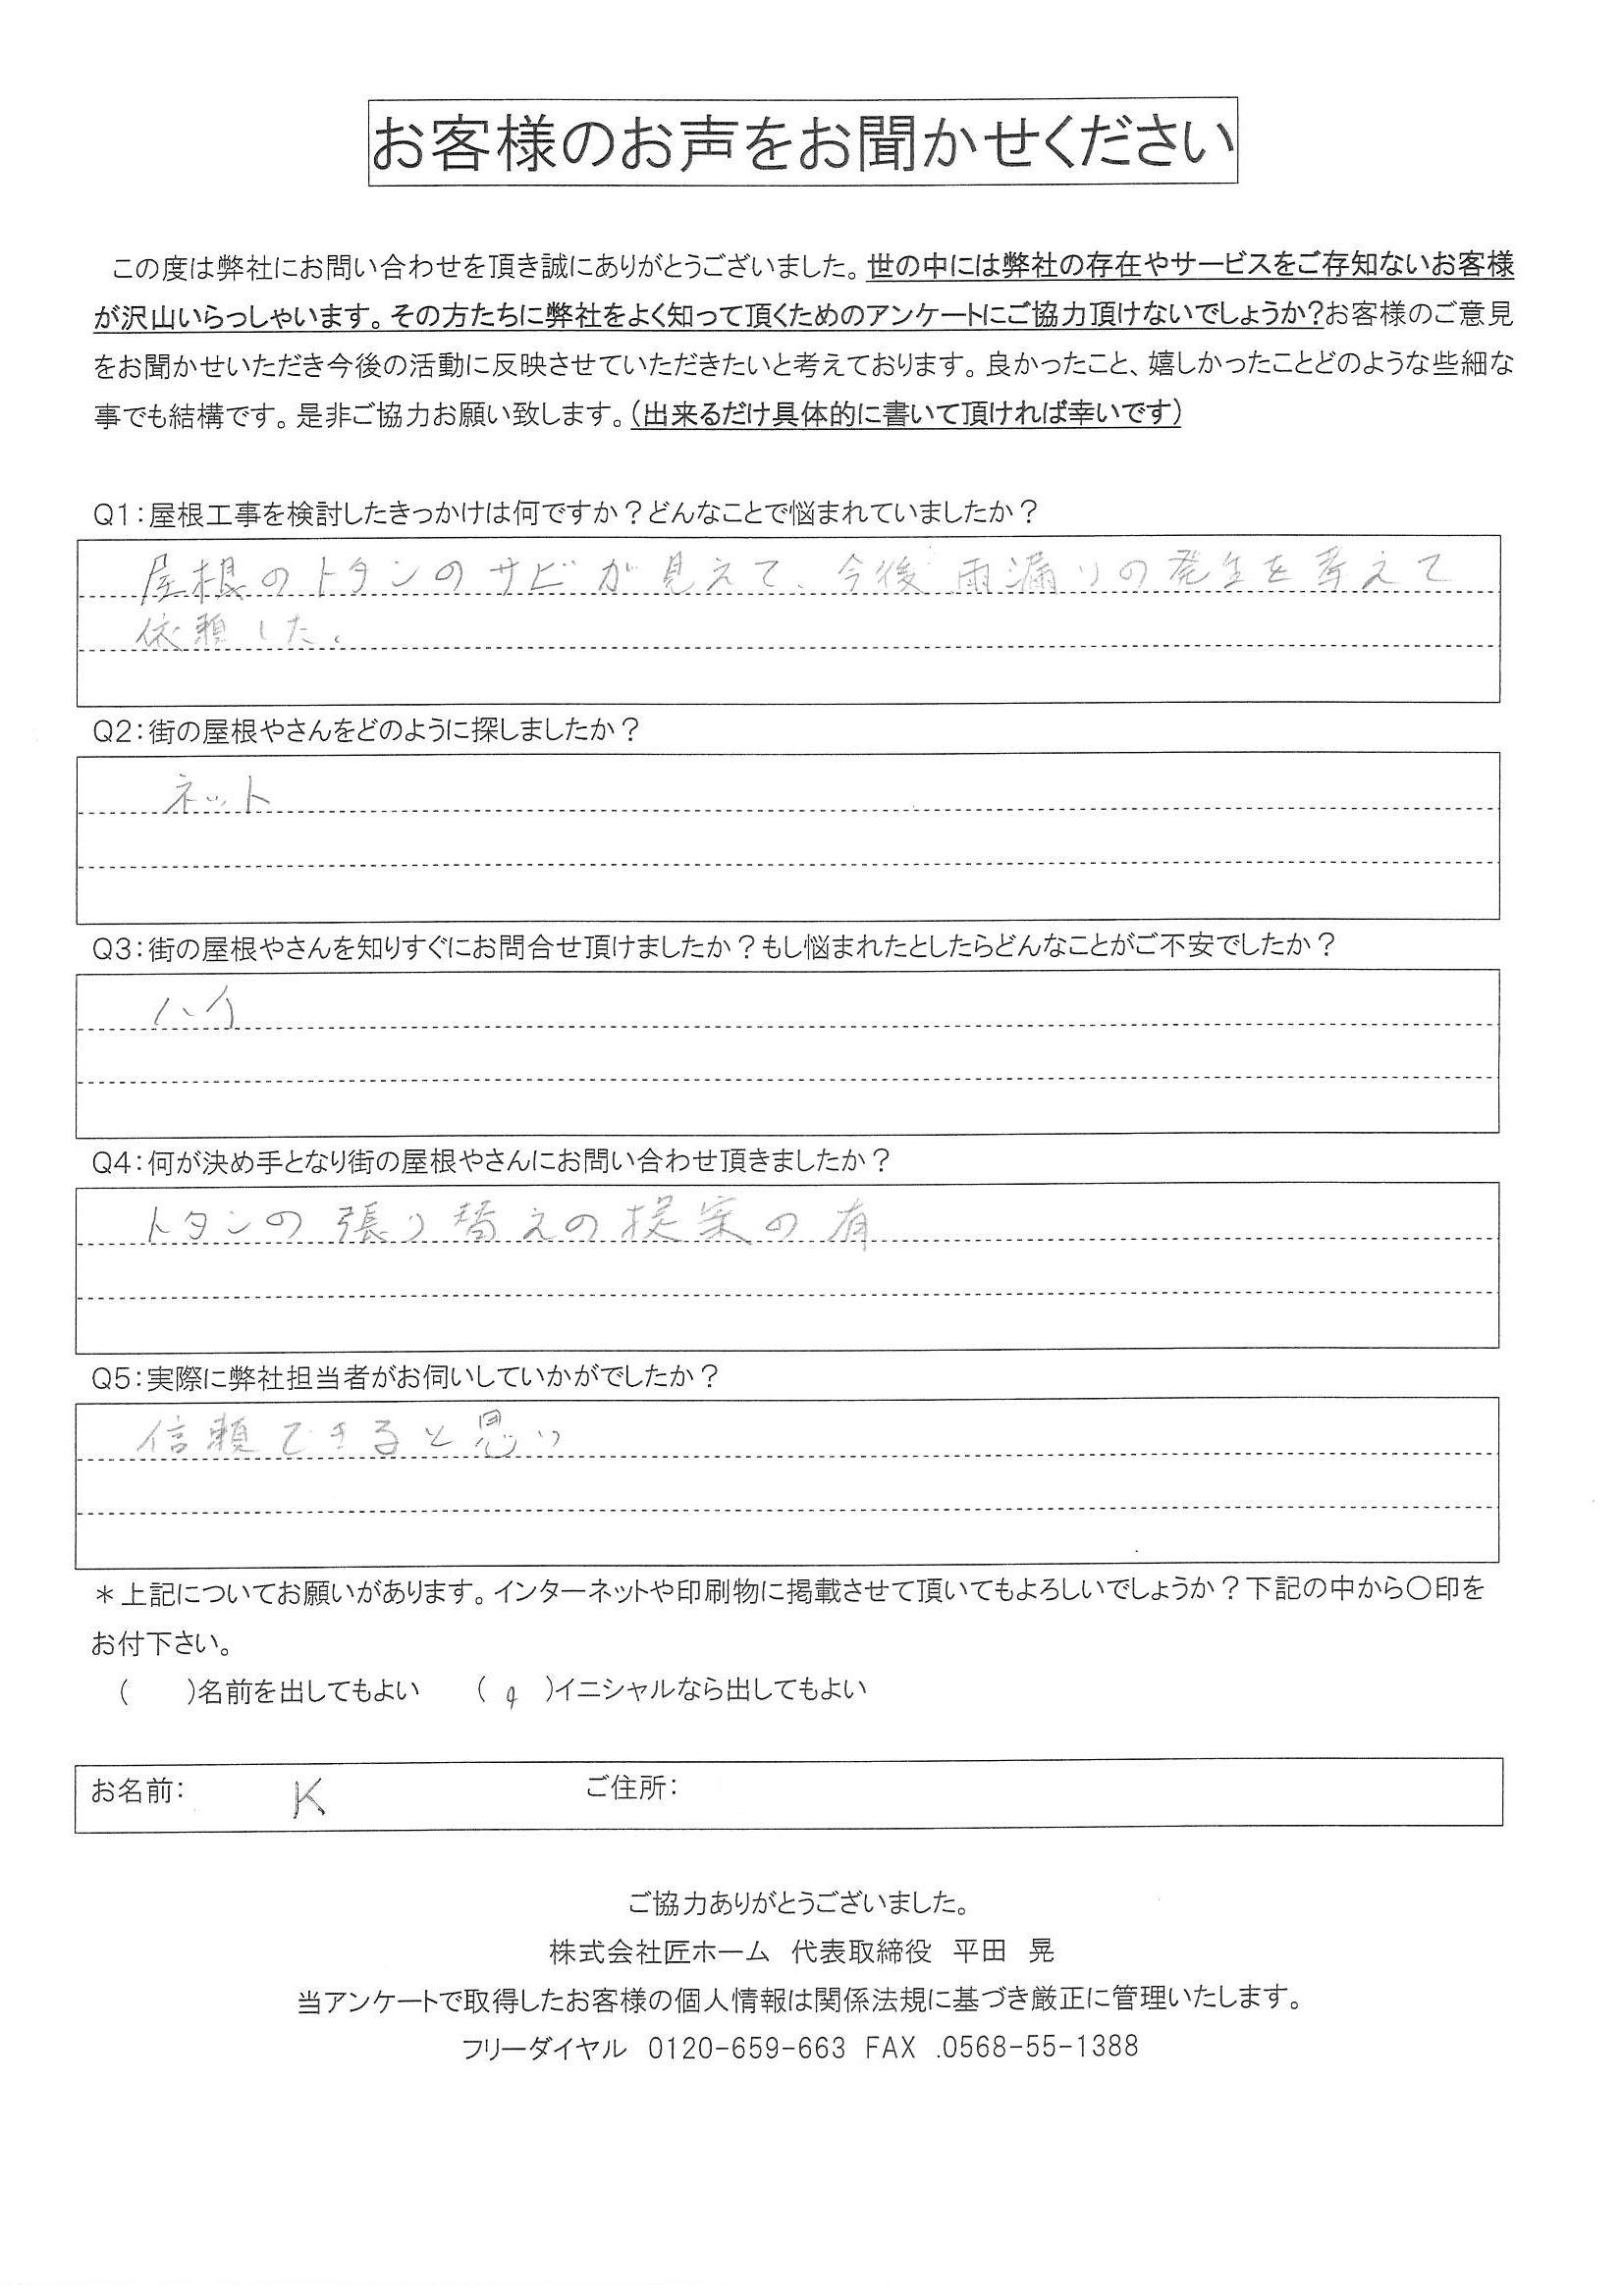 お客様のお声をお聞かせください
この度は弊社にお問い合わせを頂き誠にありがとうございました。世の中には弊社の存在やサービスをご存知ないお客様
が沢山いらっしゃいます。その方たちに弊社をよく知って頂くためのアンケートにご協力頂けないでしょうか?お客様のご意見
をお聞かせいただき今後の活動に反映させていただきたいと考えております。良かったこと、嬉しかったことどのような些細な
事でも結構です。是非ご協力お願い致します。(出来るだけ具体的に書いて頂ければ幸いです)
Q1:屋根工事を検討したきっかけは何ですか?どんなことで悩まれていましたか?
屋根のトタンのサビが見えて、今後雨漏りの発生を考えて
依頼した。
Q2:街の屋根やさんをどのように探しましたか?
ネット
Q3:街の屋根やさんを知りすぐにお問合せ頂けましたか?もし悩まれたとしたらどんなことがご不安でしたか?
ハイ
Q4:何が決め手となり街の屋根やさんにお問い合わせ頂きましたか?
トタンの張り替えの提案の有
Q5:実際に弊社担当者がお伺いしていかがでしたか?
信頼できると思い
*上記についてお願いがあります。インターネットや印刷物に掲載させて頂いてもよろしいでしょうか?下記の中から〇印を
お付下さい。
(　　)名前を出してもよい　　( 〇 )イニシャルなら出してもよい
お名前:　K　ご住所:
ご協力ありがとうございました。
株式会社匠ホーム　代表取締役　平田　晃
当アンケートで取得したお客様の個人情報は関係法規に基づき厳正に管理いたします。
フリーダイヤル 0120-659-663 FAX .0568-55-1388